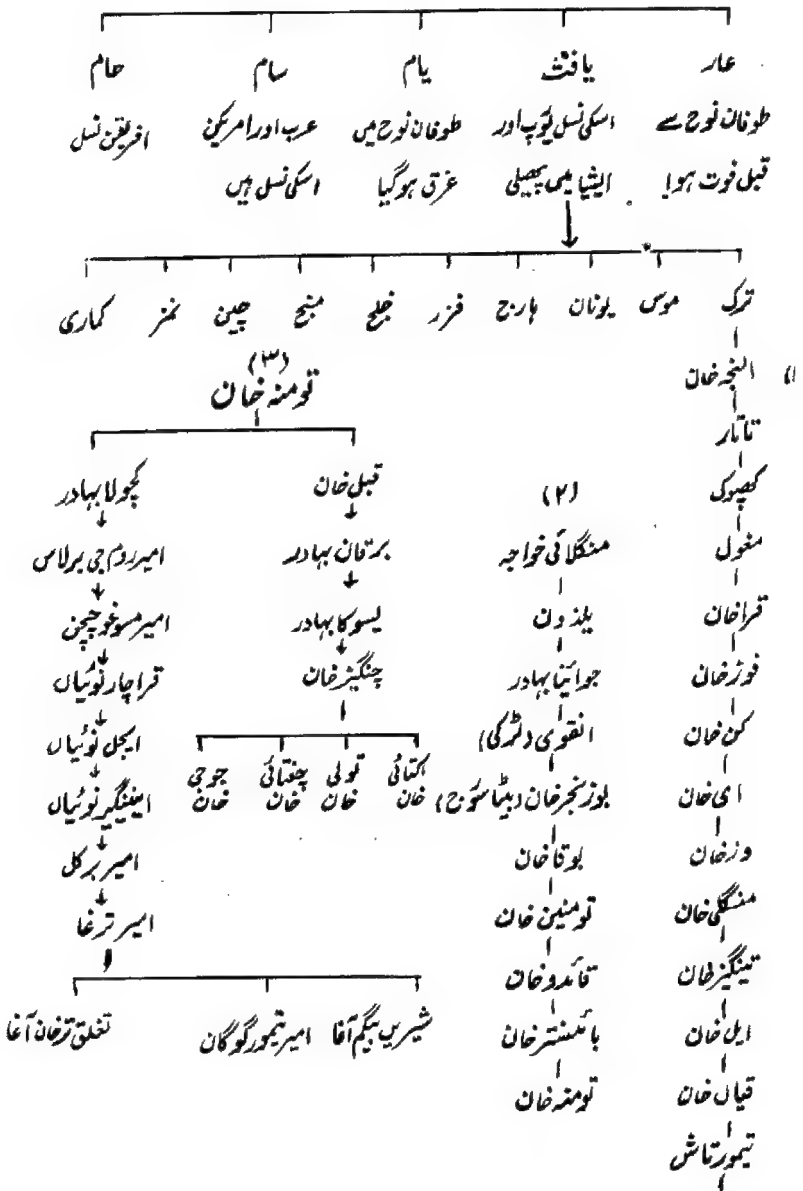 عار یافث یام سام حام
طوفان نوح سے اسکی نسل یورپ اور طوفان نوح میں عرب اور امریکن افریقن نسل
قبل فوت ہوا ایشیا میں پھیلی غرق ہوگیا اسکی نسل ہیں
ترک موس یونان ہارج فزر خلج منبج چین نمز کماری
(۱
النجہ خان
تاتار
کھپوک
مغول
قراخان
فوزخان
کن خان
ای خان
وزخان
منگلی خان
تینگیز خان
ایل خان
قیال خان
تیمورتاش
(۲)
منگلائی خواجہ
یلذون
جوائینا بہادر
انقوی (لڑکی)
بوزنجرخان (بیٹا سورج)
بوقاخان
تومنین خان
قائدوخان
بائسنتر خان
تومنہ خان
(۳)
تومنہ خان
قبل خان
برقان بہادر
یسوکا بہادر
چنگیزخان
اکتائی خان
تولی خان
چغتائی خان
جوجی خان
کچولا بہادر
امیر روم جی برلاس
امیر سوغوچیچن
قراچار نوئیاں
ایجل نوئیاں
ایلنگیر نوئیاں
امیر برکل
امیر ترغا
شیریں بیگم آغا امیر تیمور گوگان تغلق ترخان آغا